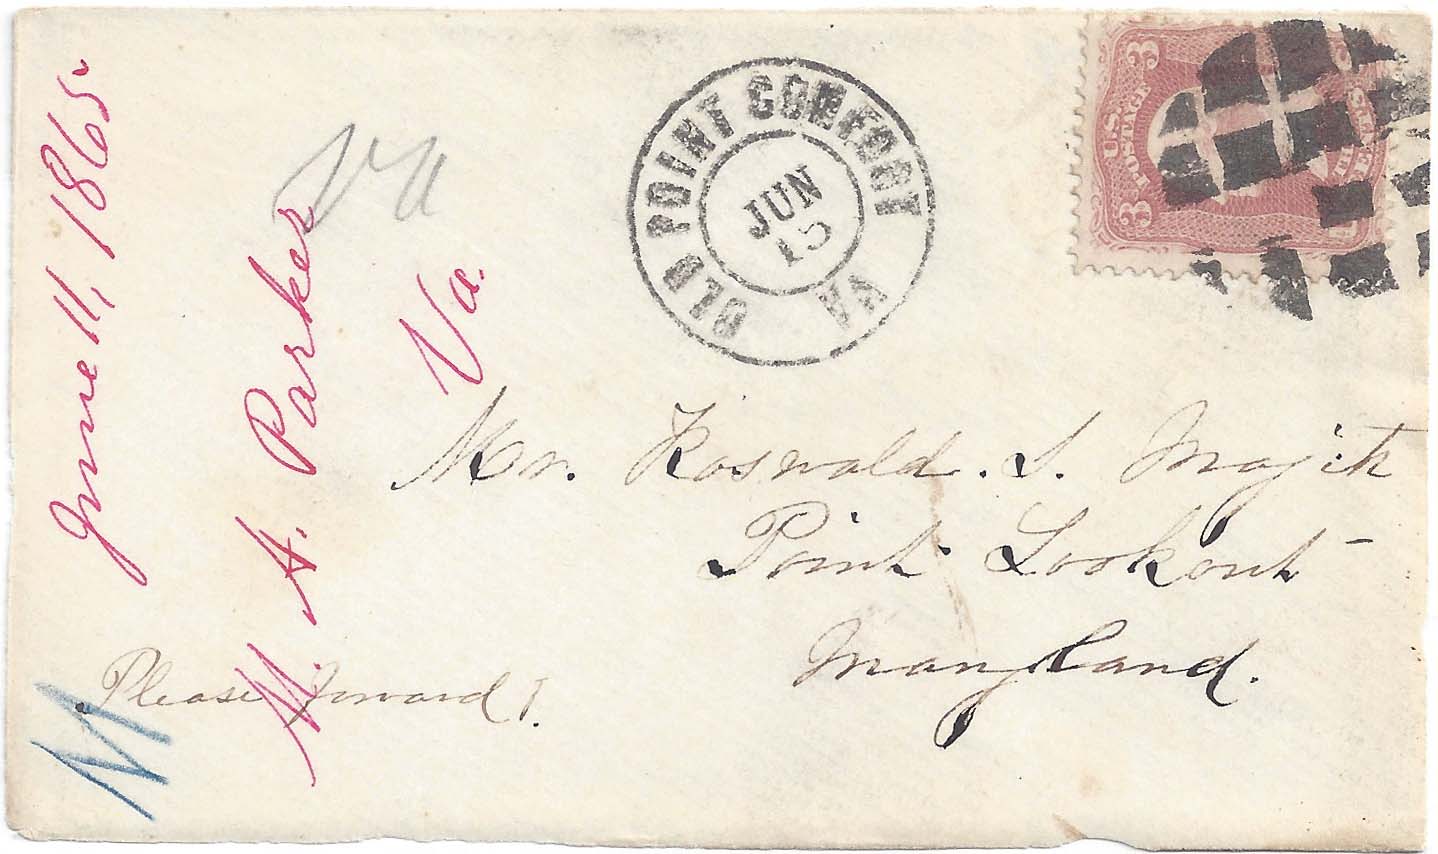 June 11, 1865
M. A. Parker
Va.
Va
OLD POINT COMFORT VA
JUN
15
3 3
U.S.
POSTAGE
Mr. Roswald. S. Majit
Point Lookout
Maryland.
Please Forward!